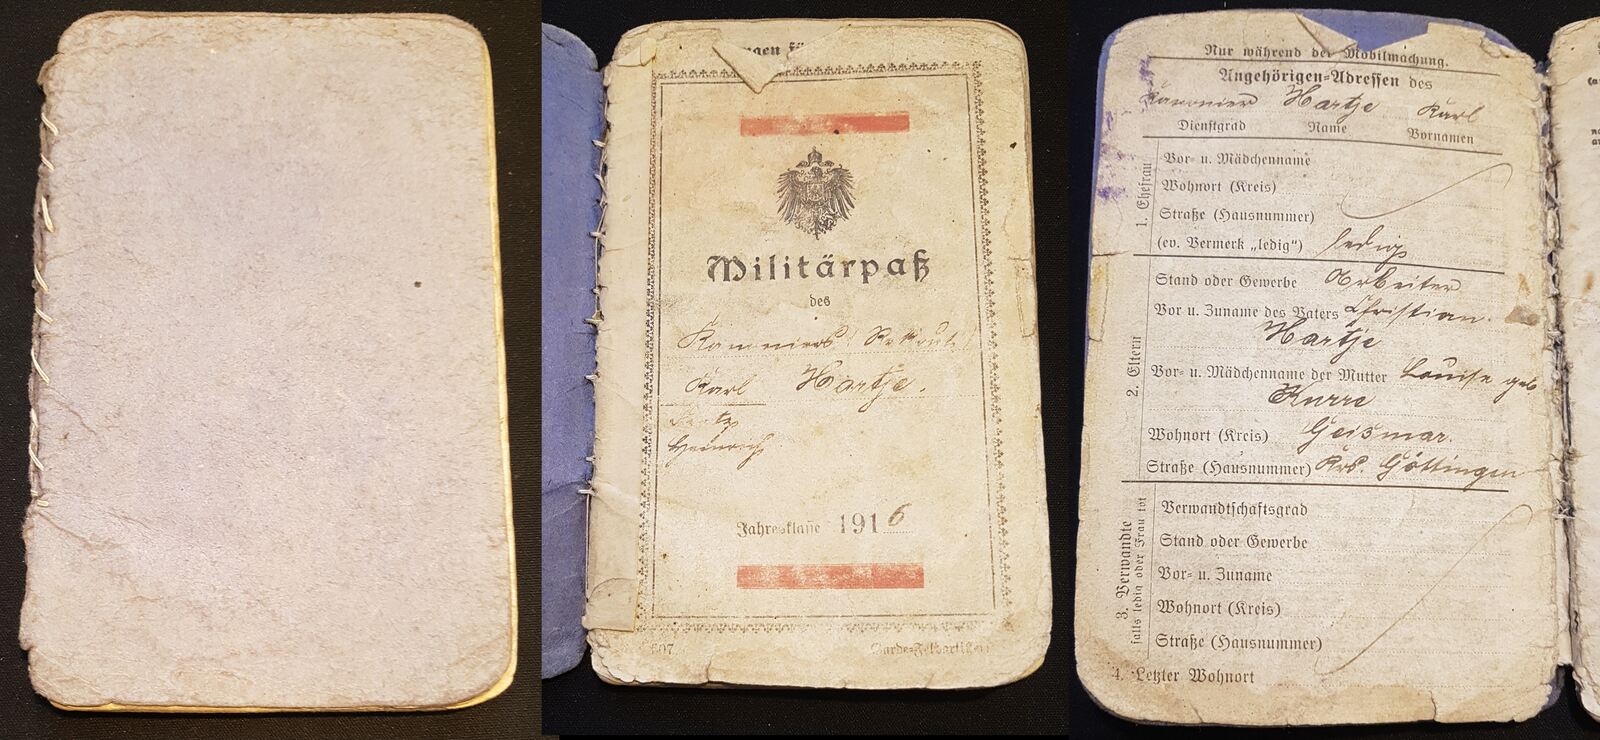 Militärpaß
des
Karl Hartje.
Heinrich
Jahresklasse 1916
507
Nur während der Mobilmachung.
Angehörigen-Adressen des
Kanonier Hartje Karl
Dienstgrad Name Vornamen
1. Ehefrau
Vor- u. Mädchenname
Wohnort (Kreis)
Straße (Hausnummer)
(ev. Vermerk „ledig“) ledig
2. Eltern
Stand oder Gewerbe Arbeiter
Vor u. Zuname des Vaters Christian
Hartje
Vor- u. Mädchenname der Mutter Louise geb
Kurre
Wohnort (Kreis) Geismar.
Straße (Hausnummer) Krs. Göttingen
3. Verwandte
falls ledig oder Frau tot
Verwandtschaftsgrad
Stand oder Gewerbe
Vor- u. Zuname
Wohnort (Kreis)
Straße (Hausnummer)
4. Letzter Wohnort